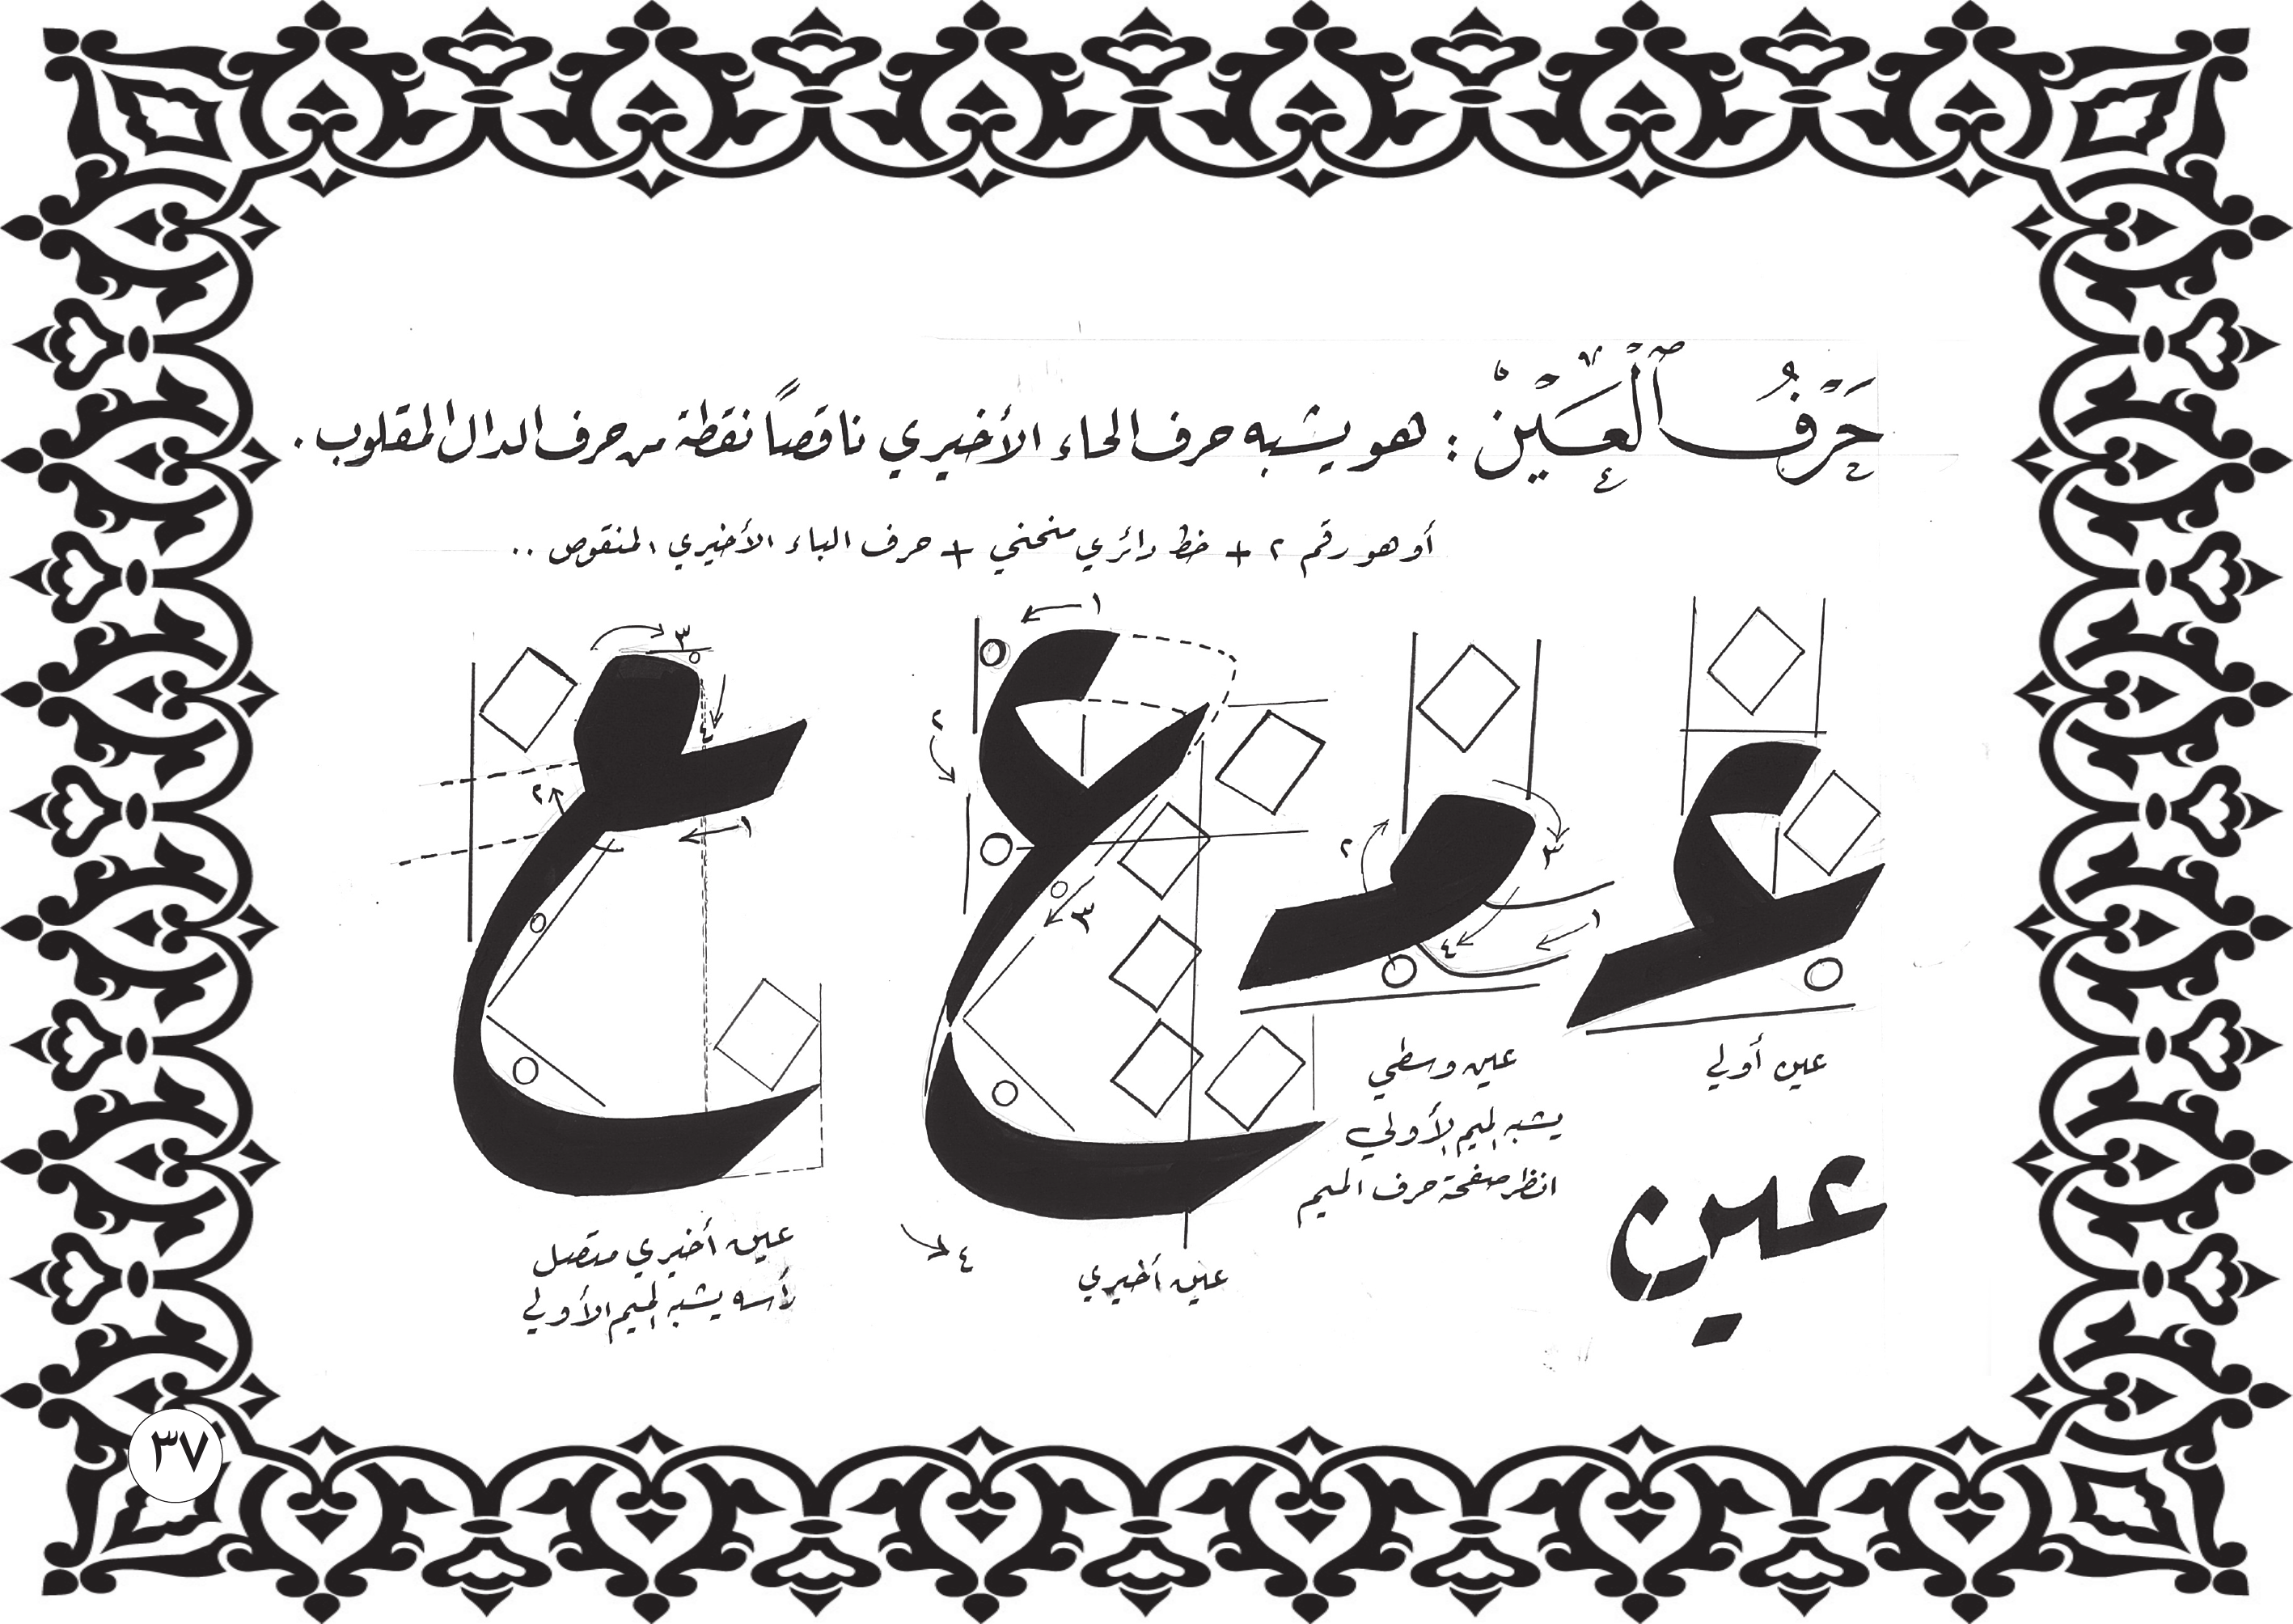 حَرْفُ ٱلْعَيْنْ : هو يشبه حرف الحاء الأخيري ناقصاً نقطة من حرف الدال المقلوب .
أو هو رقم ٢ + خط دائري منحني + حرف الباء الأخيري المنقوص ..
١
٢
٣
٤
١
٢
٣
٤
١
٢
٣
٤
عين أولي
عين وسطي
يشبه الميم الأولي
انظر صفحة حرف الميم
عين
عين أخيري
عين أخيري متصل
رأسه يشبه الميم الأولي
٣٧